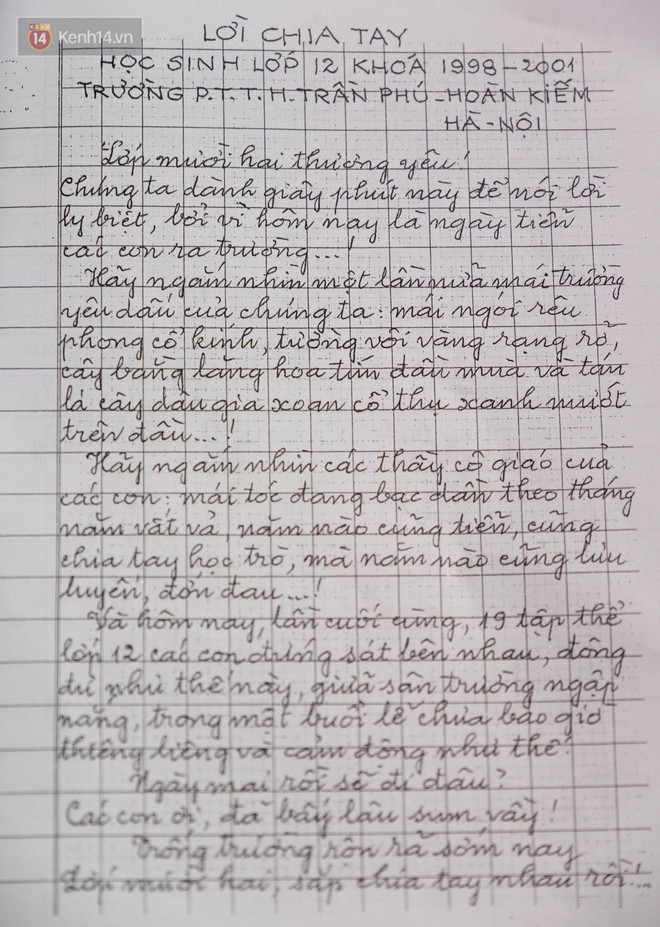 14 Kenh14.vn
LỜI CHIA TAY
HỌC SINH LỚP 12 KHOÁ 1998-2001
TRƯỜNG P.T.T.H. TRẦN PHÚ-HOÀN KIẾM
HÀ-NỘI
Lớp mười hai thương yêu!
Chúng ta dành giây phút này để nói lời
ly biệt, bởi vì hôm nay là ngày tiễn
các con ra trường...!
Hãy ngắm nhìn một lần nữa mái trường
yêu dấu của chúng ta: mái ngói rêu
phong cổ kính, tường vôi vàng rạng rỡ,
cây bằng lăng hoa tím đầu mùa và tán
lá cây dâu gia xoan cổ thụ xanh mướt
trên đầu...!
Hãy ngắm nhìn các thầy cô giáo của
các con: mái tóc đang bạc dần theo tháng
năm vất vả, năm nào cũng tiễn, cũng
chia tay học trò, mà năm nào cũng lưu
luyến, đớn đau...!
Và hôm nay, lần cuối cùng, 19 tập thể
lớp 12 các con đứng sát bên nhau, đông
đủ như thế này, giữa sân trường ngập
nắng, trong một buổi lễ chưa bao giờ
thiêng liêng và cảm động như thế!
Ngày mai rồi sẽ đi đâu?
Các con ơi, đã bấy lâu sum vầy!
Trống trường rộn rã sớm nay
Lớp mười hai, sắp chia tay nhau rồi...!